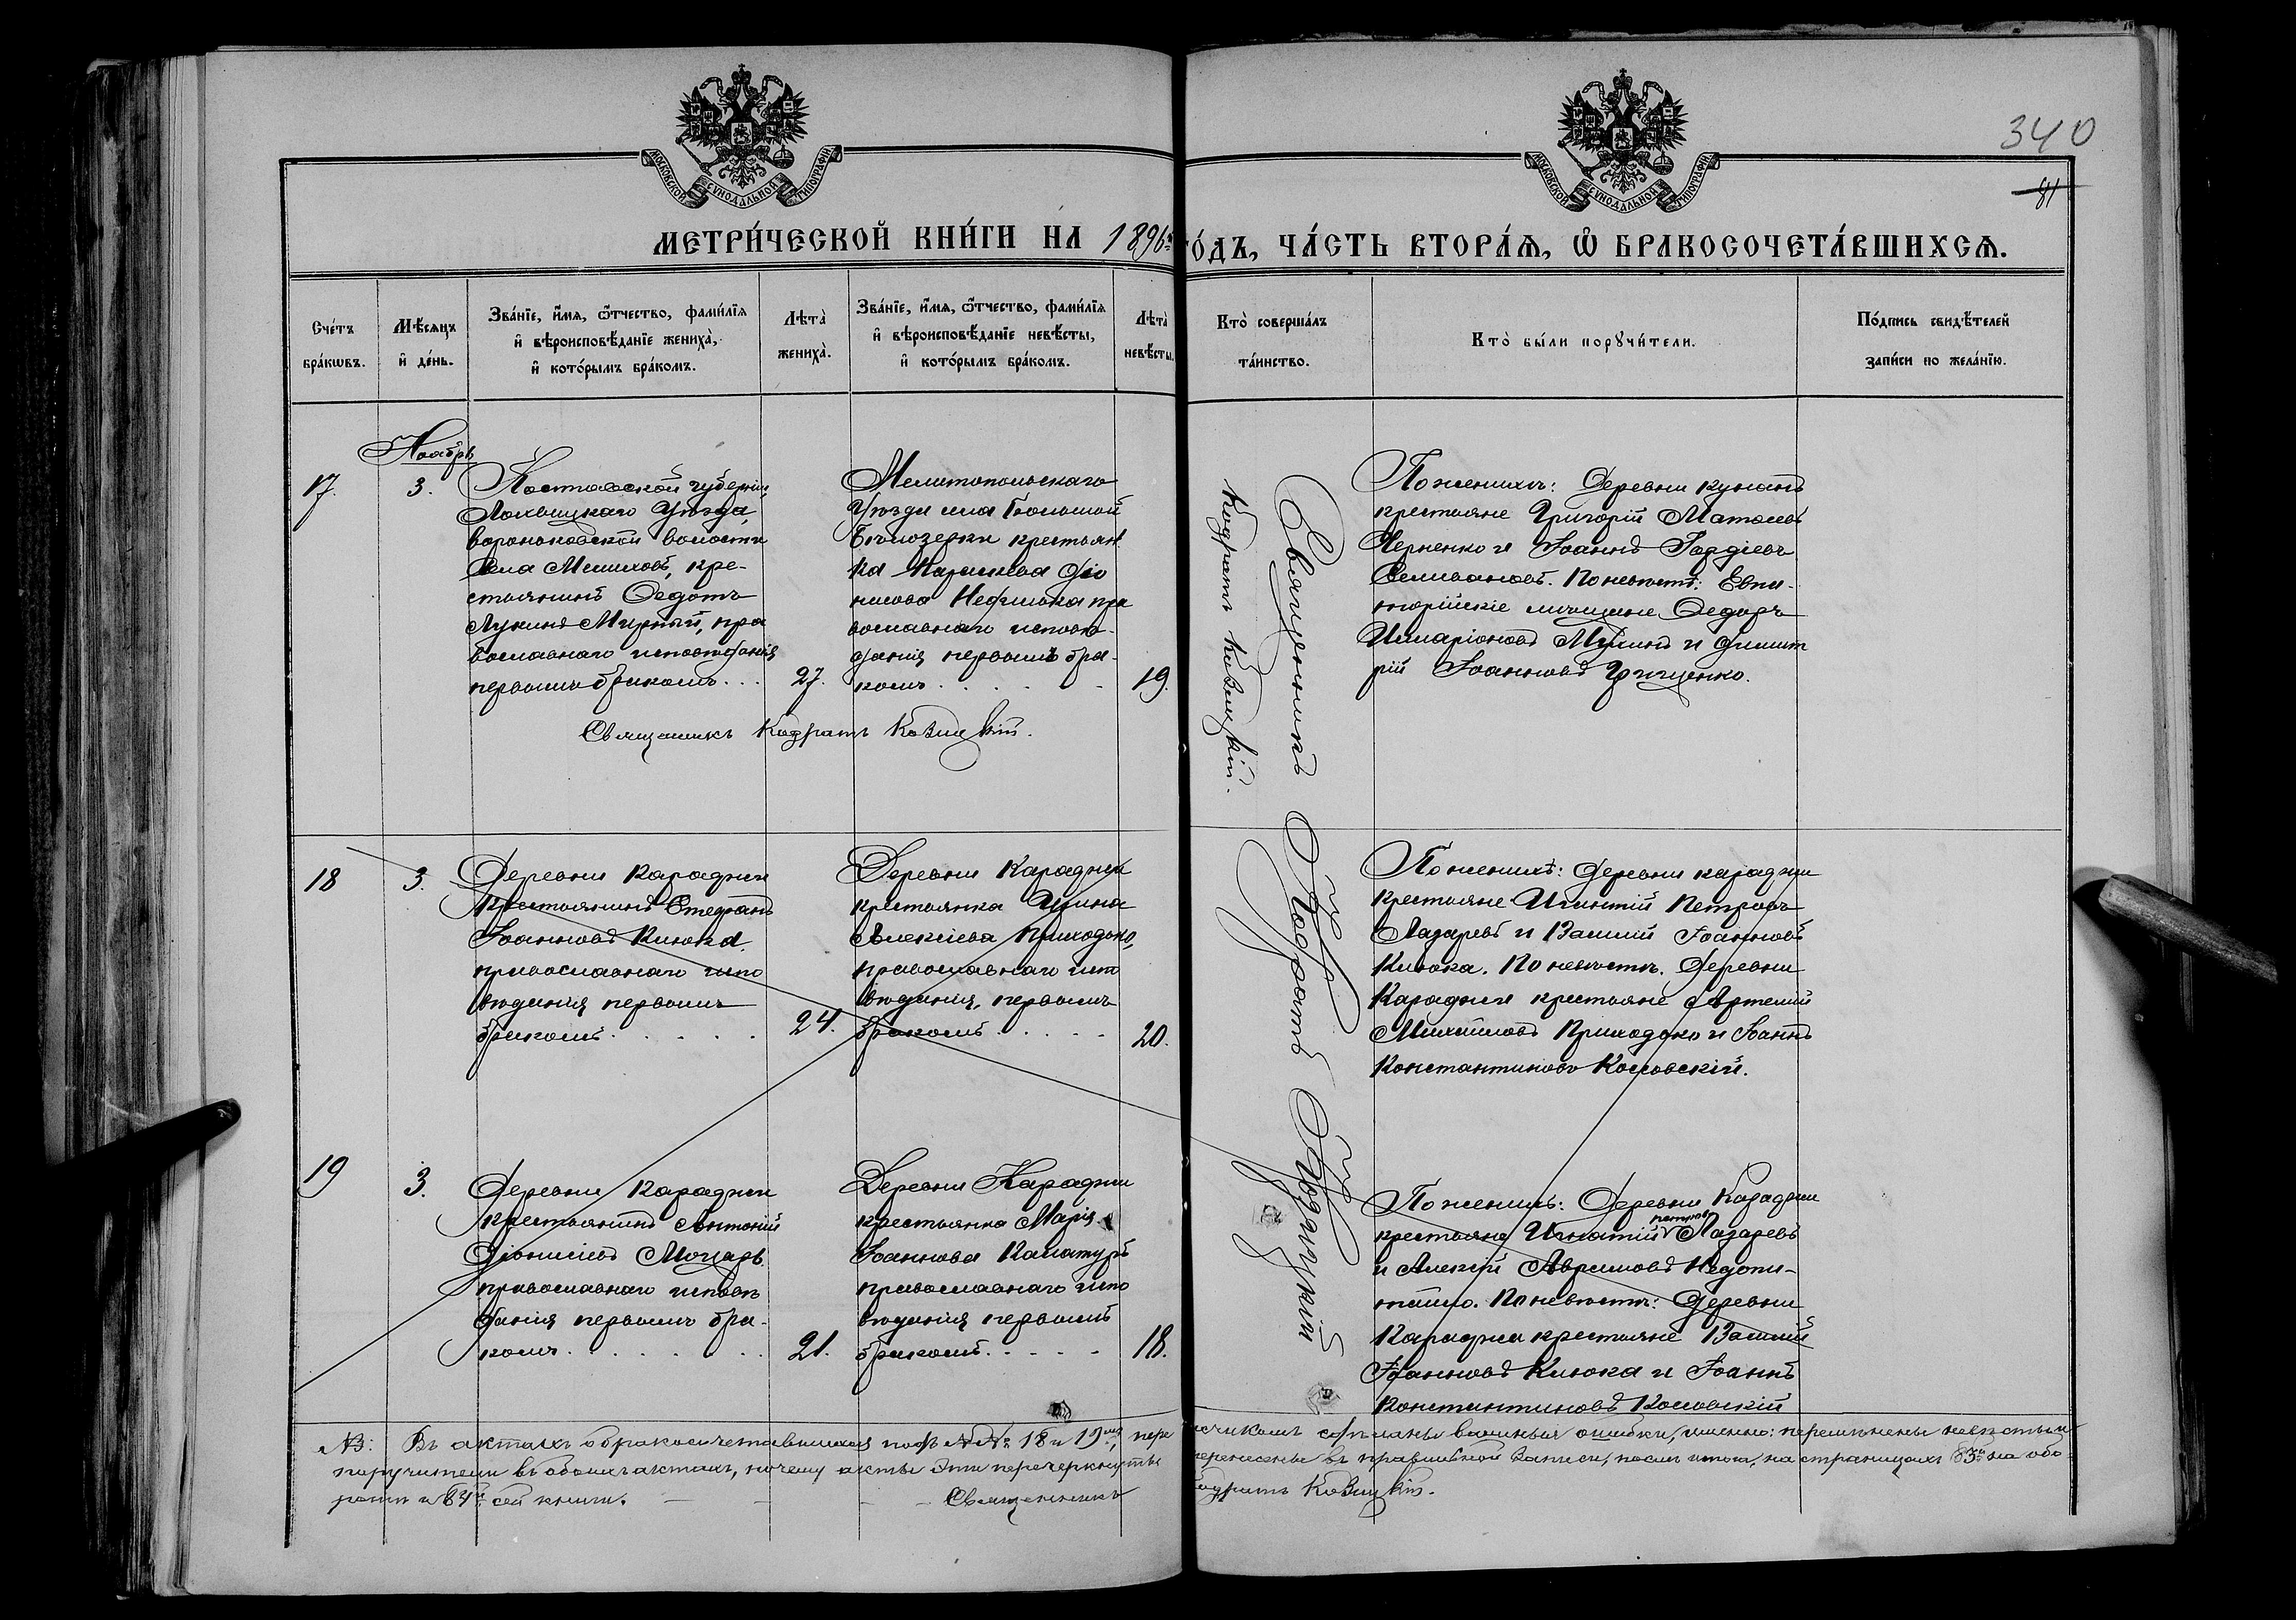 340
81
МОСКОВСКОЙ СѴНОДАЛЬНОЙ ТИПОГРАФІИ
МОСКОВСКОЙ СѴНОДАЛЬНОЙ ТИПОГРАФІИ
МЕТРИ́ЧЕСКОЙ КНИ́ГИ НА 1896й
ГО́ДЪ, ЧА́СТЬ ВТОРА́Ѧ, Ѽ БРАКОСОЧЕТА́ВШИХСѦ.
Сче́тъ бра́кѡвъ.
Мѣ́сѧцъ и҆ де́нь.
Зва́нїе, и҆́мѧ, ѻ҆́тчество, фами́лїѧ
и҆ вѣроисповѣ́данїе жениха̀,
и҆ кото́рымъ бра́комъ.
Лѣта̀ жениха̀.
Зва́нїе, и҆́мѧ, ѻ҆́тчество, фами́лїѧ
и҆ вѣроисповѣ́данїе невѣ́сты,
и҆ кото́рымъ бра́комъ.
Лѣта̀ невѣ́сты.
Кто̀ соверша́лъ та́инство.
Кто̀ бы́ли порꙋчи́тели.
По́дпись свидѣ́телей за́писи по жела́нїю.
Ноябрь
17.
3.
Полтавской губерніи,
Лохвицкаго Уѣзда,
вороньковской волости
Села Мелиховъ, кре-
стьянинъ Ѳедотъ
Лукинъ Мирный, пра
вославнаго исповѣданія
первымъ бракомъ...
27.
Мелитопольскаго
Уѣзда села Большой
Бѣлозерки крестьян
ка Параскева Діо
нисова Нефшока пра
вославнаго исповѣ-
данія первымъ бра-
комъ
19.
Священникъ Кодратъ Козицкій.
Священникъ Кодратъ Козицкій
Кодратъ Козицкій.
По женихѣ: Деревни Кунанъ
крестьяне Григорій Матѳеевъ
Черненко и Іоаннъ Гордіевъ
Селивановъ. По невѣстѣ: Евпа-
торійскіе мѣщане Ѳедоръ
Илларіоновъ и Димит
рій Іоанновъ Грищенко.
18
3.
Деревни Караджи
крестьянинъ Стефанъ
Іоанновъ Клюка
православнаго испо
вѣданія первымъ
бракомъ
24.
Деревни Караджи
крестьянка Ирина
Алексіева Приходько,
православнаго испо
вѣданія, первымъ
бракомъ
20.
По женихѣ: Деревни Караджи
крестьяне Игнатій Петровъ
Лазаревъ и Василій Іоанновъ
Клюка. По невѣстѣ. Деревни
Караджи крестьяне Артемій
Михайловъ Приходько и Іоаннъ
Константиновъ Коссовскій.
19
3.
Деревни Караджи
крестьянинъ Антоній
Діонисіевъ Моцарь
православнаго исповѣ
данія первымъ бра-
комъ
21.
Деревни Караджи
крестьянка Марія
Іоаннова Калатуръ
православнаго испо
вѣданія первымъ
бракомъ
18.
По женихѣ: Деревни Караджи
крестьяне Игнатій Петровъ Лазаревъ
и Алексій Аврамовъ Недопи-
тайло. По невѣстѣ: Деревни
Караджи крестьяне Василій
Іоанновъ Клюка и Іоаннъ
Константиновъ Коссовскій
NB: Въ актахъ о бракосочетавшихся подъ №№ 18 и 19ымъ, пере
счикомъ сдѣланы важныя ошибки, именно: перемѣнены невѣсты и
поручители въ обоихъ актахъ, почему акты эти перечеркнуты
перенесены въ правильной записи, послѣ итога, на страницахъ 83й на обо
ротѣ и 84й сей книги. Священникъ
Кодратъ Козицкій.